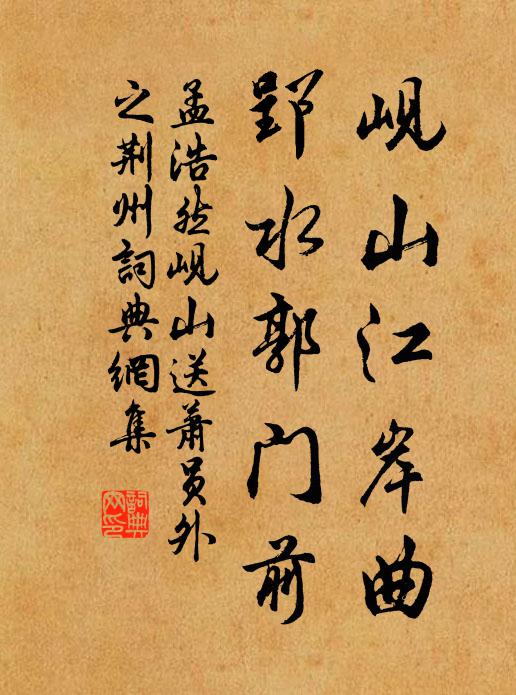 岘山江岸曲
郢水郭门前
孟浩然岘山送萧员外
之荆州词典網集
詞典网印